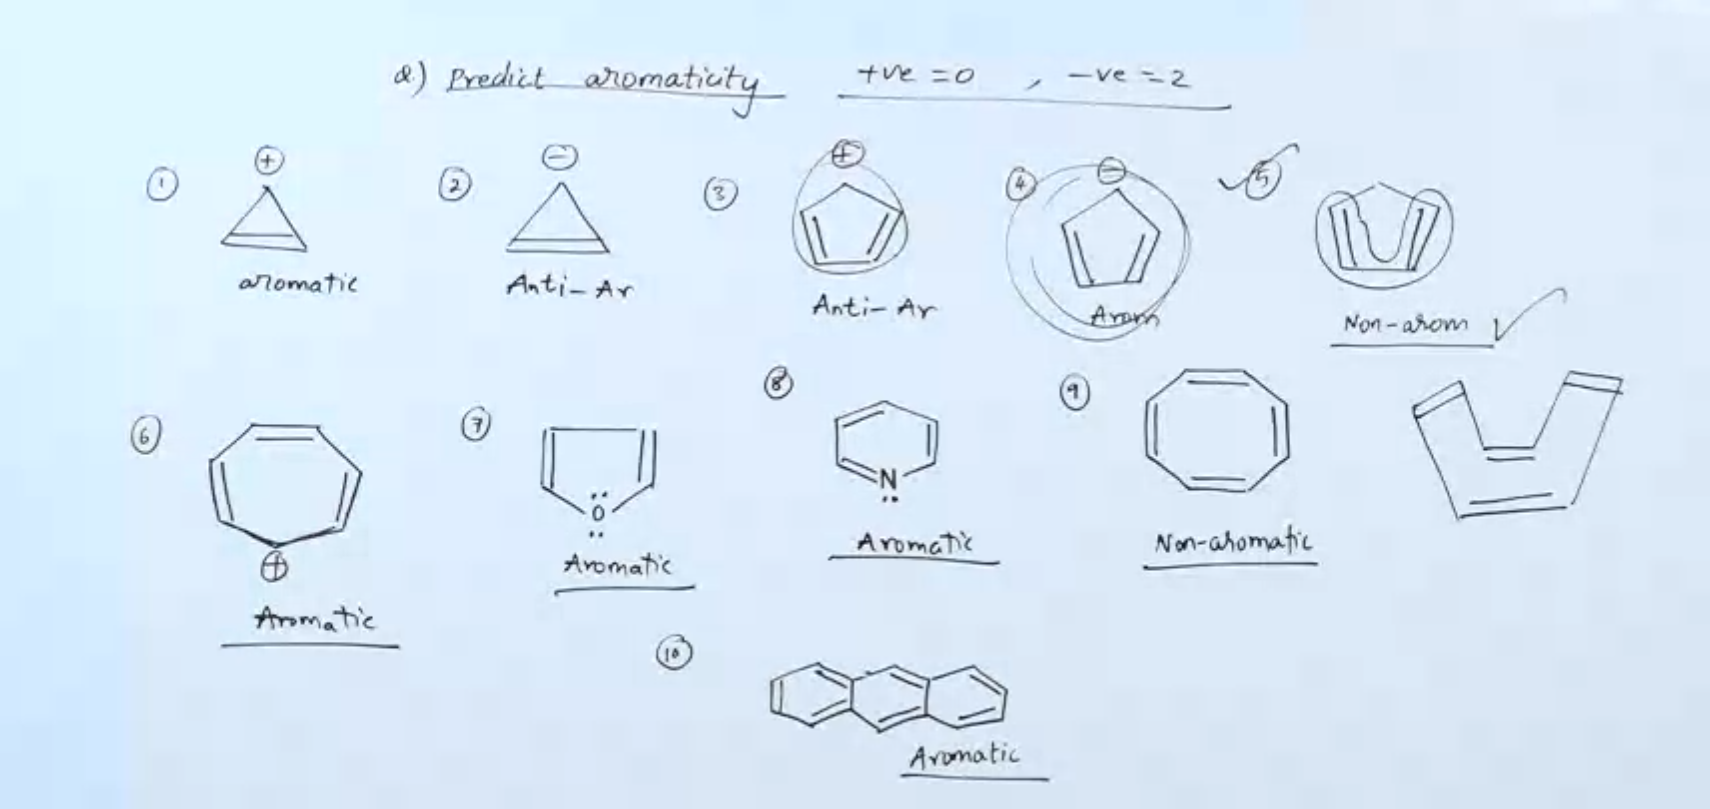 Q.) Predict aromaticity +ve = 0 , -ve = 2
① ② ③ ④ ⑤
+ - + -
aromatic Anti-Ar Anti-Ar Arom Non-arom
⑥ ⑦ ⑧ ⑨
+ :O: N:
Aromatic Aromatic Aromatic Non-aromatic
⑩
Aromatic